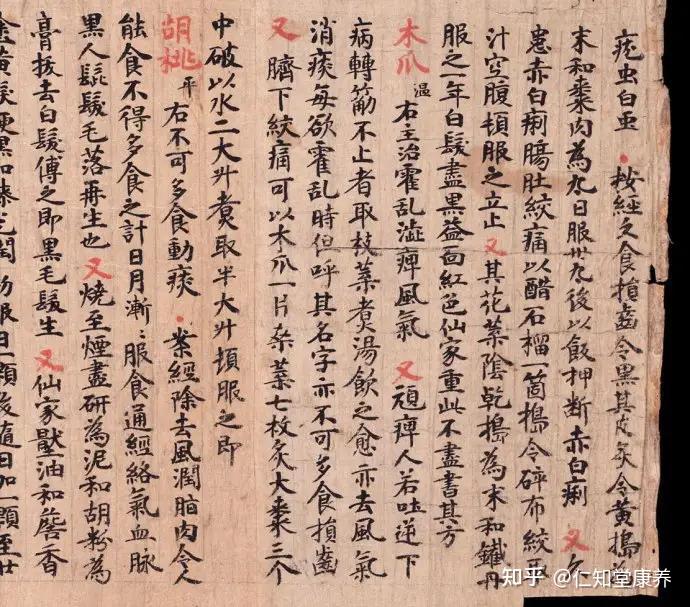 疣虫白虫 · 按经久食损齿令黑其皮炙令黄捣
末和枣肉为丸日服卅丸後以飯押断赤白痢 又
患赤白痢腸肚絞痛以醋石榴一箇搗令碎布絞
汁空腹頓服之立止 又其花葉陰乾搗為末和鐵丹
服之一年白髮盡黑益面紅色仙家重此不盡書其方
木瓜 温 右主治霍乱澁痺風氣 又頑痺人若吐逆下
病轉筋不止者取枝葉煮湯飲之愈亦去風氣
消痰每欲霍乱時但呼其名字亦不可多食損齒
又 臍下絞痛可以木瓜一片桒葉七枚炙大棗三个
中破以水二大升煮取半大升頓服之即
胡桃 平 右不可多食動痰 · 案經除去風潤脂肉令人
能食不得多食之計日月漸〻服食通經絡氣血脉
黒人髭髮毛落再生也 又燒至煙盡研為泥和胡粉為
膏拔去白髮傅之即黒毛髮生 又仙家壓油和詹香
塗黄髮便黒如漆光潤 初服日一顆後隨日加一顆至廿
知乎 @仁知堂康养